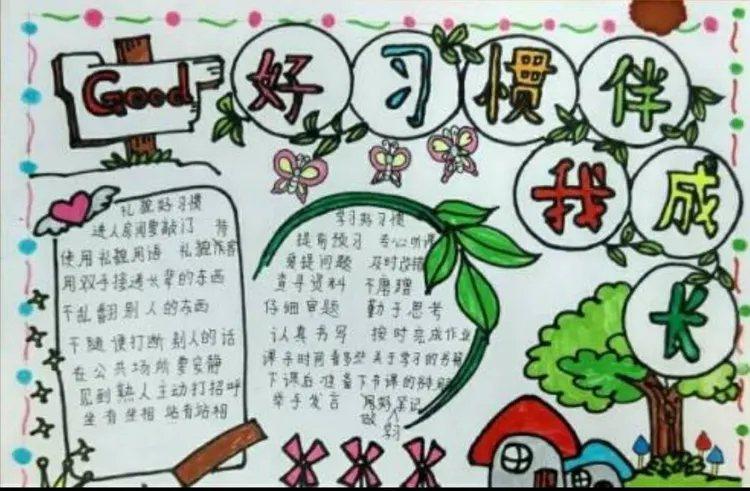 Good
好习惯伴
我成
长
礼貌好习惯
进人房间要敲门
使用礼貌用语 礼貌待客
用双手接递长辈的东西
不乱翻别人的东西
不随便打断别人的话
在公共场所要安静
见到熟人主动打招呼
坐有坐相 站有站相
学习好习惯
提前预习 专心听课
爱提问题 及时改错
查寻资料 不磨蹭
仔细审题 勤于思考
认真书写 按时完成作业
课余时间看些关于学习的书籍
下课后准备下节课的
举手发言 做好笔记
学习